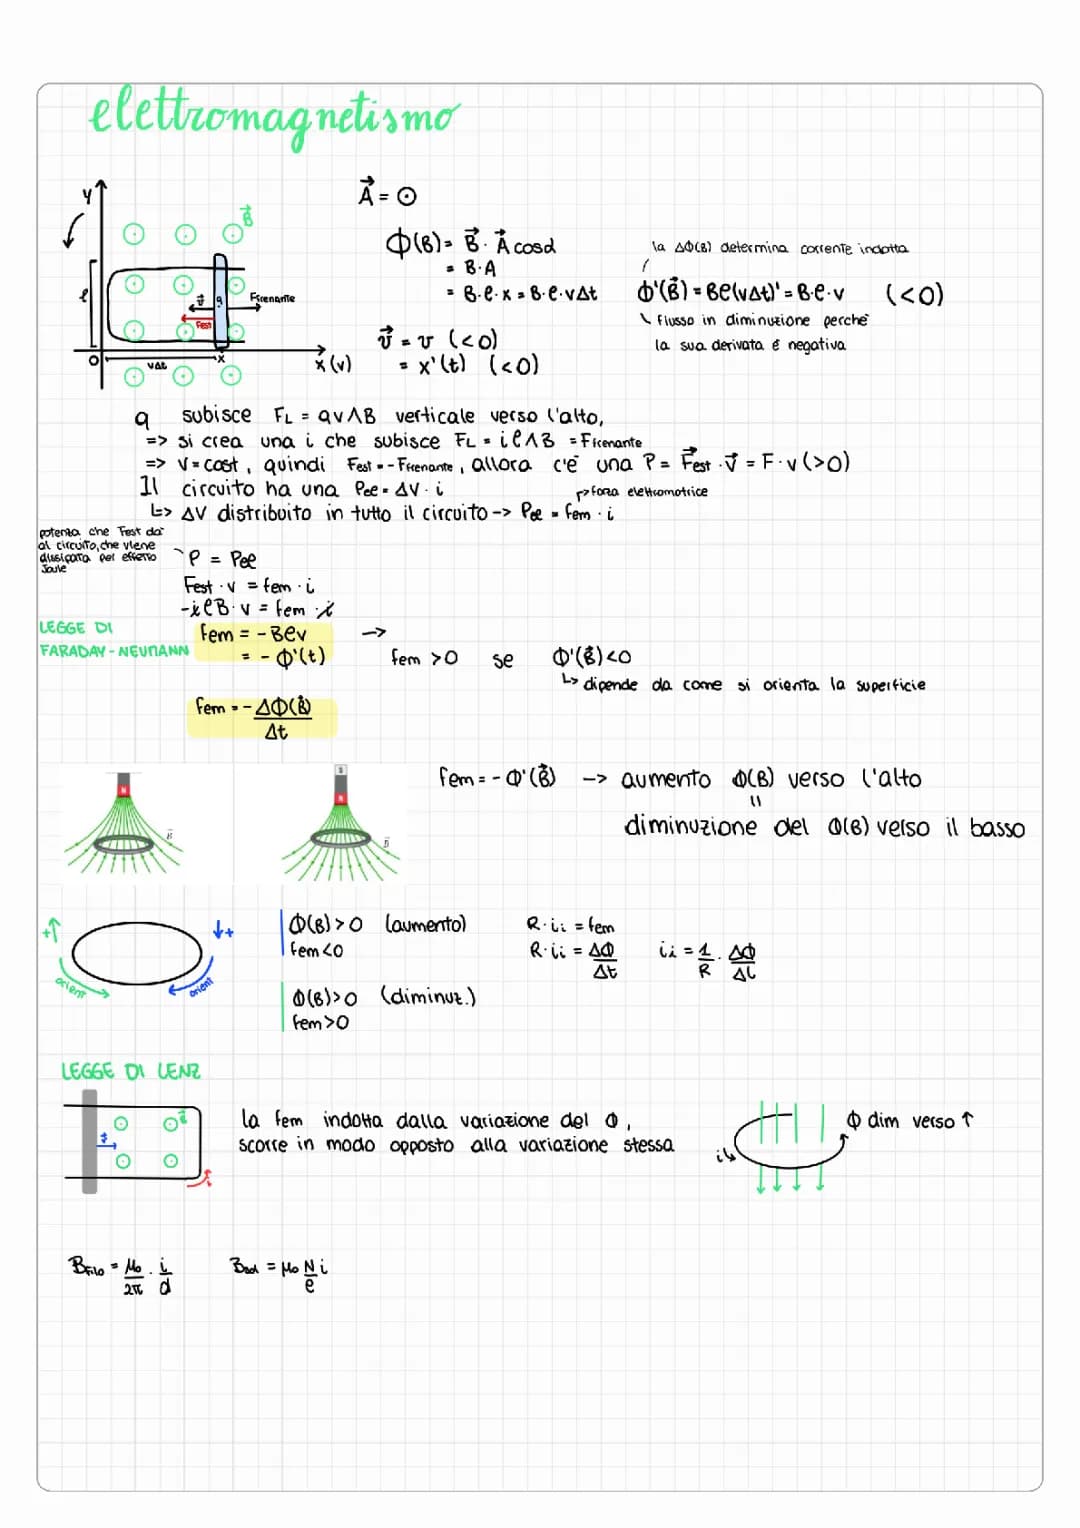 elettromagnetismo
y
B⃗
ℓ
v⃗
q
Ffrenante
Fest
O
vΔt
x
x (v)
A⃗ = ⊙
Φ(B) = B⃗ · A⃗ cosα
= B·A
= B·ℓ·x = B·ℓ·vΔt
v⃗ = v (<0)
= x'(t) (<0)
la ΔΦ(B) determina corrente indotta
Φ'(B⃗) = Bℓ(vΔt)' = B·ℓ·v (<0)
flusso in diminuzione perchè
la sua derivata è negativa
q subisce FL = qv∧B verticale verso l'alto,
=> si crea una i che subisce FL = iℓ∧B = Ffrenante
=> v = cost, quindi Fest = -Ffrenante, allora c'è una P = F⃗est · v⃗ = F·v (>0)
Il circuito ha una Pee = ΔV · i
forza elettromotrice
↳> ΔV distribuito in tutto il circuito -> Pee = fem · i
potenza che Fest da'
al circuito, che viene
dissipata per effetto
Joule
P = Pee
Fest · v = fem · i
-iℓB·v = fem · i
LEGGE DI
FARADAY-NEUMANN
fem = - Bℓv ->
= - Φ'(t)
fem >0 se Φ'(B⃗)<0
↳> dipende da come si orienta la superficie
fem = - ΔΦ(B⃗)
Δt
N
B⃗
S
N
B⃗
fem = - Φ'(B⃗) -> aumento Φ(B) verso l'alto
=
diminuzione del Φ(B) verso il basso
+↑
orient
↓+
orient
Φ(B)>0 (aumento)
fem<0
Φ(B)>0 (diminuz.)
fem>0
R·ii = fem
R·ii = ΔΦ
Δt
ii = 1/R · ΔΦ/Δt
LEGGE DI LENZ
v⃗
B⃗
i
la fem indotta dalla variazione del Φ,
scorre in modo opposto alla variazione stessa
i
Φ dim verso ↑
Bfilo = μ₀/2π · i/d
Bsol = μ₀ N/ℓ i